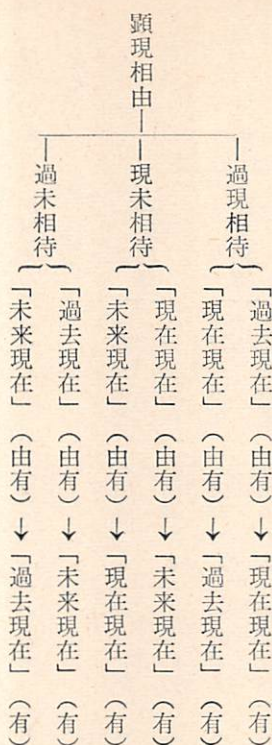 顕現相由
過現相待
「過去現在」（由有）→「現在現在」（有）
「現在現在」（由有）→「過去現在」（有）
現未相待
「現在現在」（由有）→「未来現在」（有）
「未来現在」（由有）→「現在現在」（有）
過未相待
「過去現在」（由有）→「未来現在」（有）
「未来現在」（由有）→「過去現在」（有）